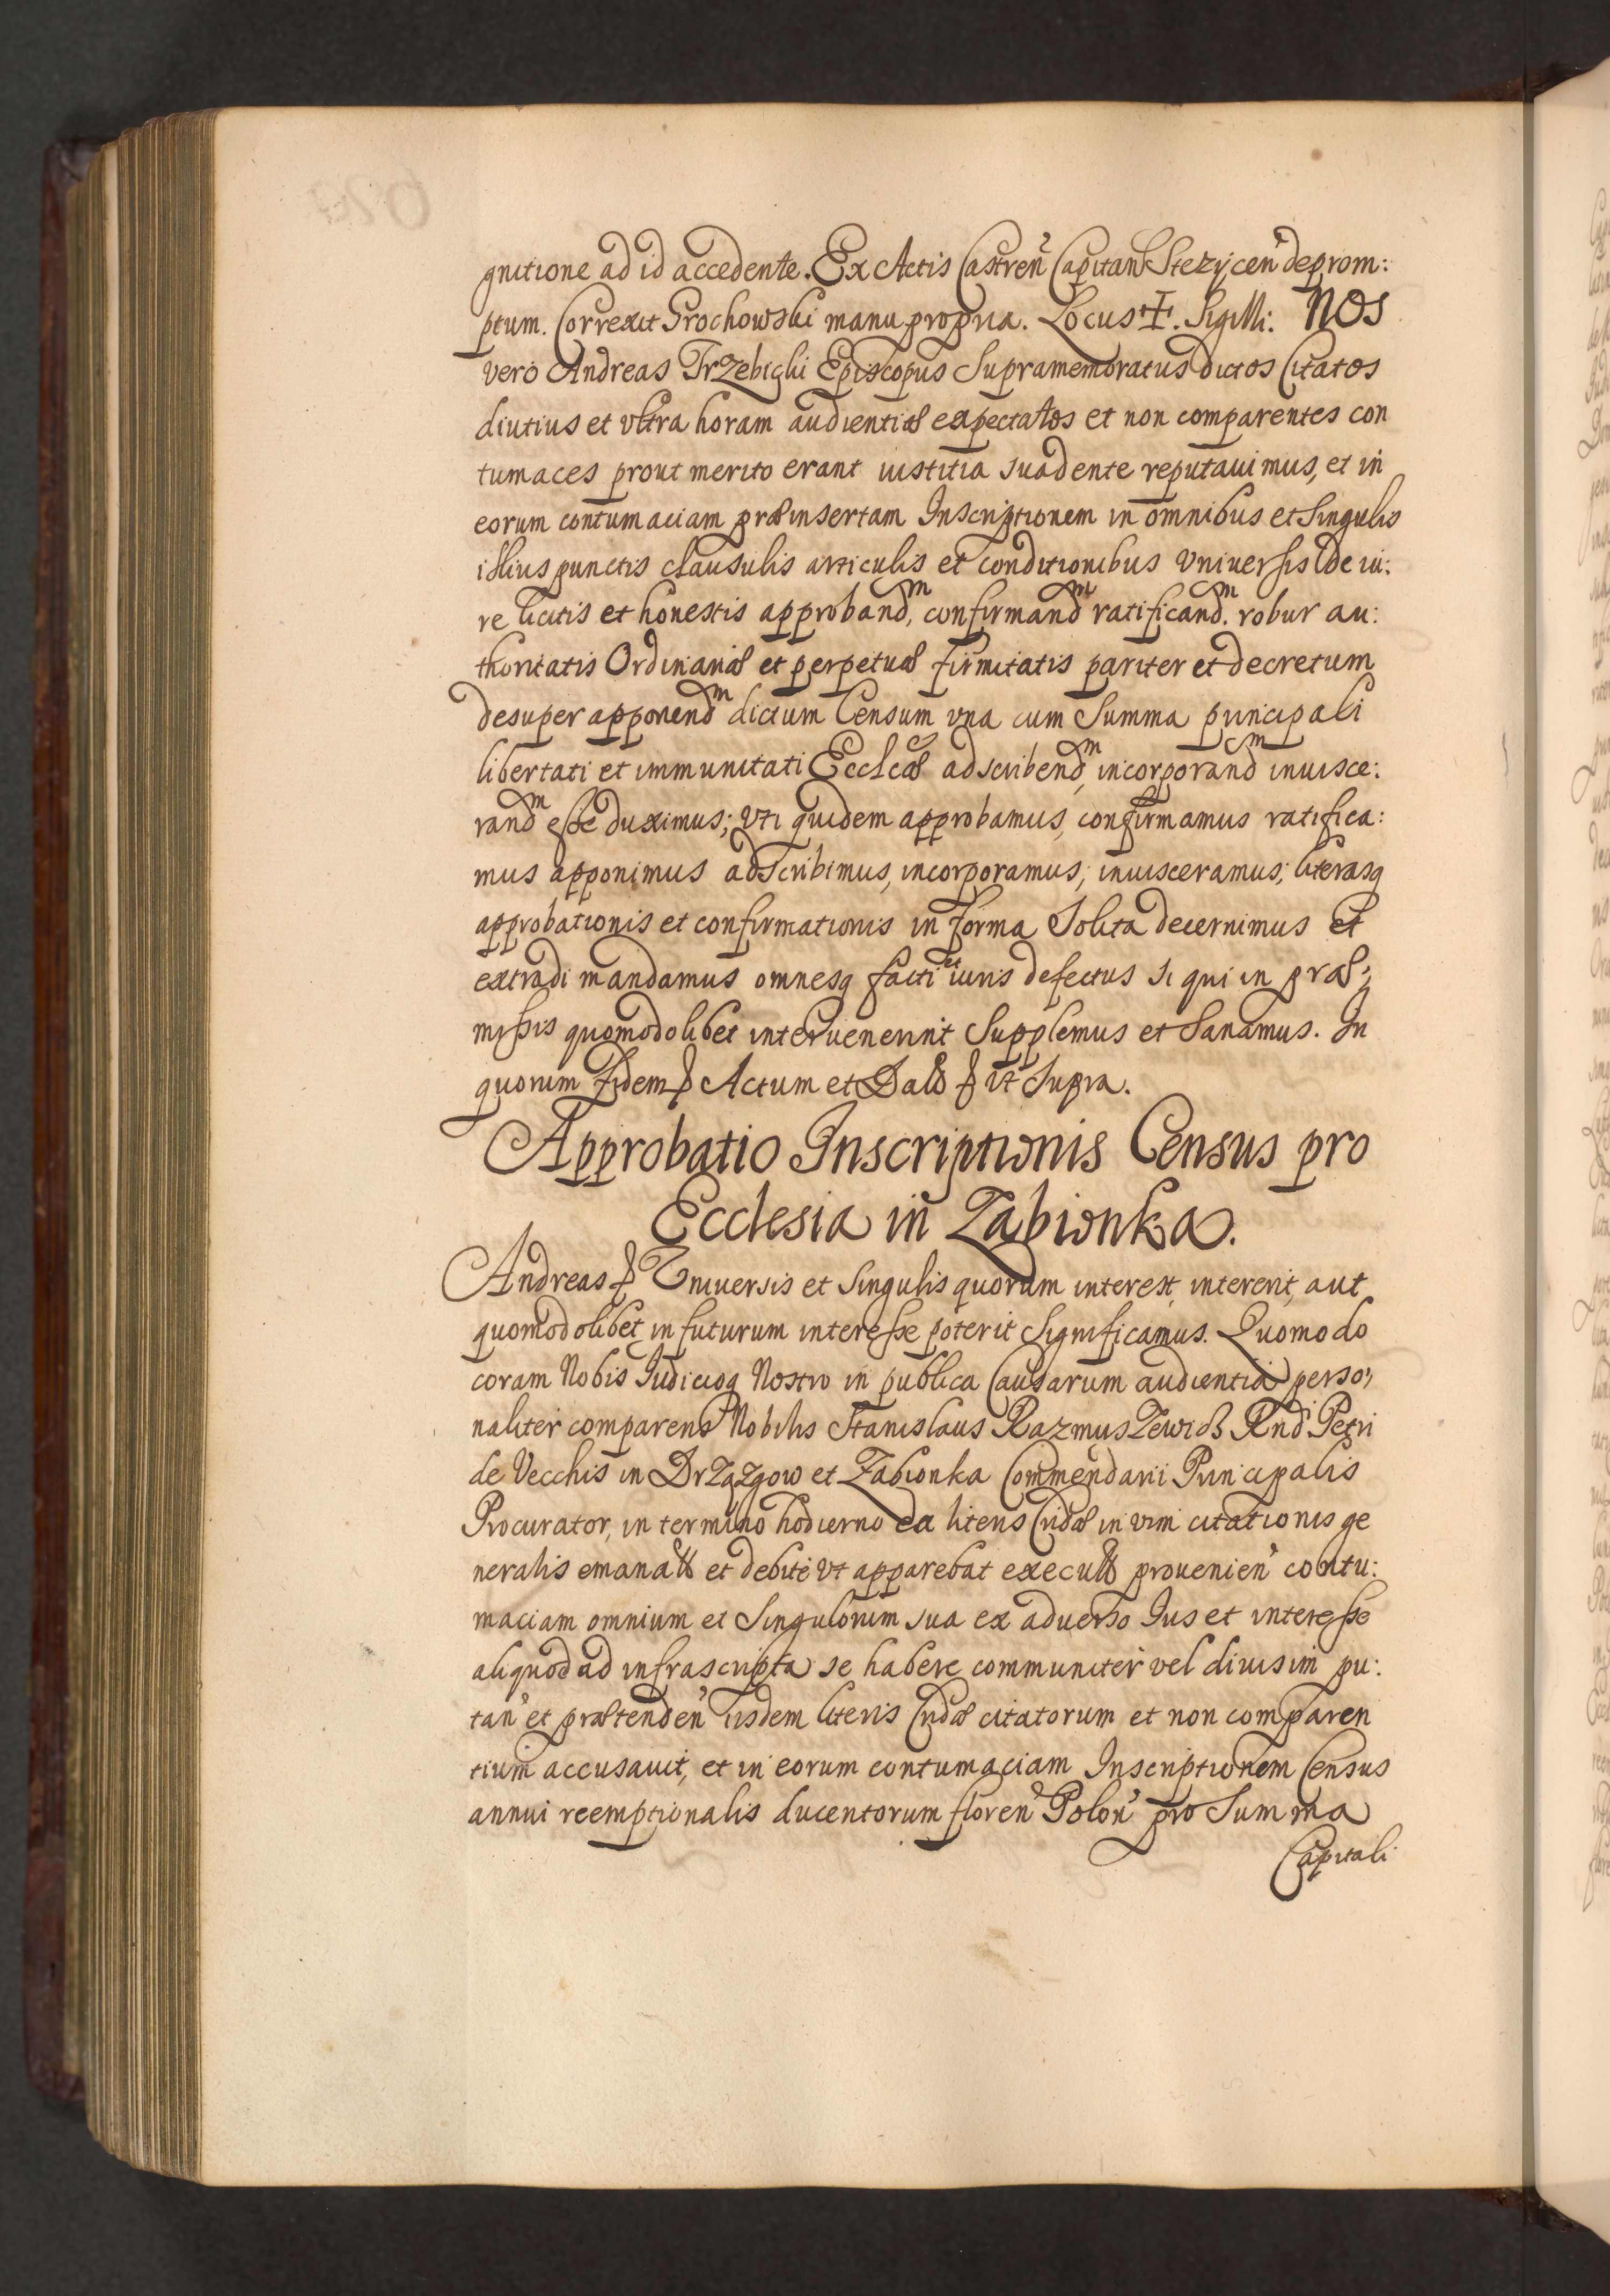 gnitione ad id accedente. Ex Actis Castren̄ Capitan̄ Stezycen̄ deprom:
ptum. Correxit Grochowski manu propria. Locus ✝. Sigilli: NOS
vero Andreas Trzebicki Episcopus Supramembratus dictos Citatos
diutius et vltra horam audientiæ expectatos et non comparentes con
tumaces prout merito erant iustitia suadente reputauimus, et in
eorum contumaciam præinsertam Inscriptionem in omnibus et Singulis
illius punctis clausulis articulis et conditionibus Vniuersis de iu:
re licitis et honestis approband̄ᵐ, confirmand̄ᵐ ratificand̄ᵐ. robur au:
thoritatis Ordinariæ et perpetuæ firmitatis pariter et decretum
desuper apponend̄ᵐ dictum Censum vna cum Summa principali
libertati et immunitati Ecclēæ adscribend̄ᵐ, incorporand̄ᵐ inuisce:
rand̄ᵐ esse duximus; vti quidem approbamus, confirmamus ratifica:
mus apponimus adscribimus, incorporamus, inuisceramus; literasq
approbationis et confirmationis in forma Solita decernimus et
extradi mandamus omnesq facti et iuris defectus si qui in præ:
missis quomodolibet interuenerint Supplemus et Sanamus. In
quorum fidem & Actum et Datt & vt Supra.
Approbatio Inscriptionis Census pro
Ecclesia in Zabionka.
Andreas & Vniuersis et Singulis quorum interest, intererit, aut
quomodolibet in futurum interesse poterit Significamus. Quomodo
coram Nobis Iudicioq Nostro in publica Causarum audientia perso:
naliter comparens Nobilis Stanislaus Razmuszewicz Rnd̄ Petri
de Vecchis in Drzązgow et Zabionka Commendarii Principalis
Procurator, in termino hodierno ex literis Cridæ in vim citationis ge
neralis emanatt et debite vt apparebat executt prouenien̄ contu:
maciam omnium et Singulorum sua ex aduerso Ius et interesse
aliquod ad infrascripta se habere communiter vel diuisim pu:
tan̄ et prætenden̄ iisdem literis Cridæ citatorum et non comparen
tium accusauit, et in eorum contumaciam Inscriptionem Census
annui reemptionalis ducentorum floren̄ Polon̄ pro Summa
Capitali